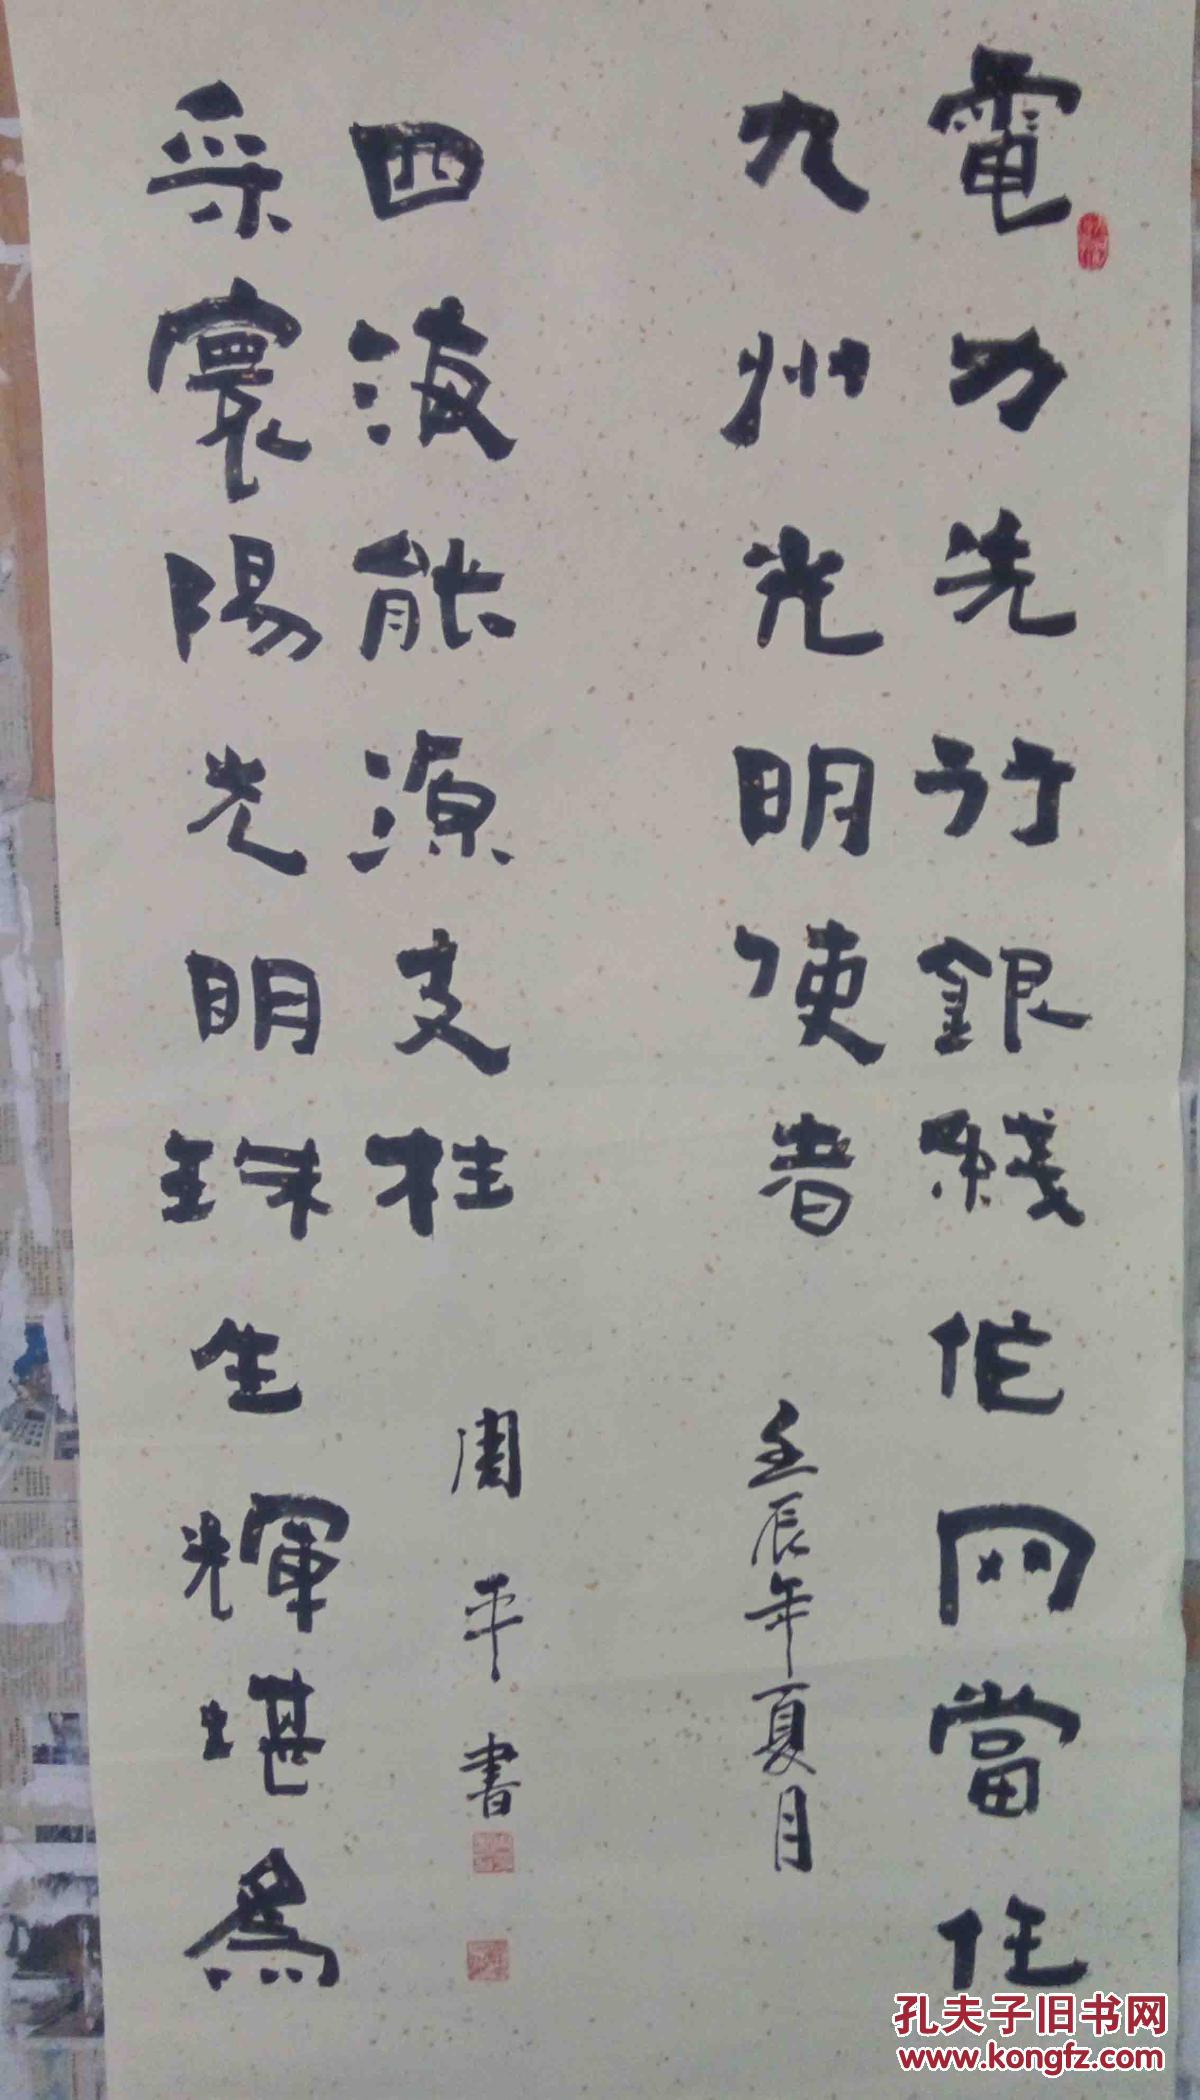 電力先行銀綫作网當任
九州光明使者
壬辰年夏月
采寰陽光明珠生輝堪為
四海能源支柱
周平書
孔夫子旧书网
www.kongfz.com